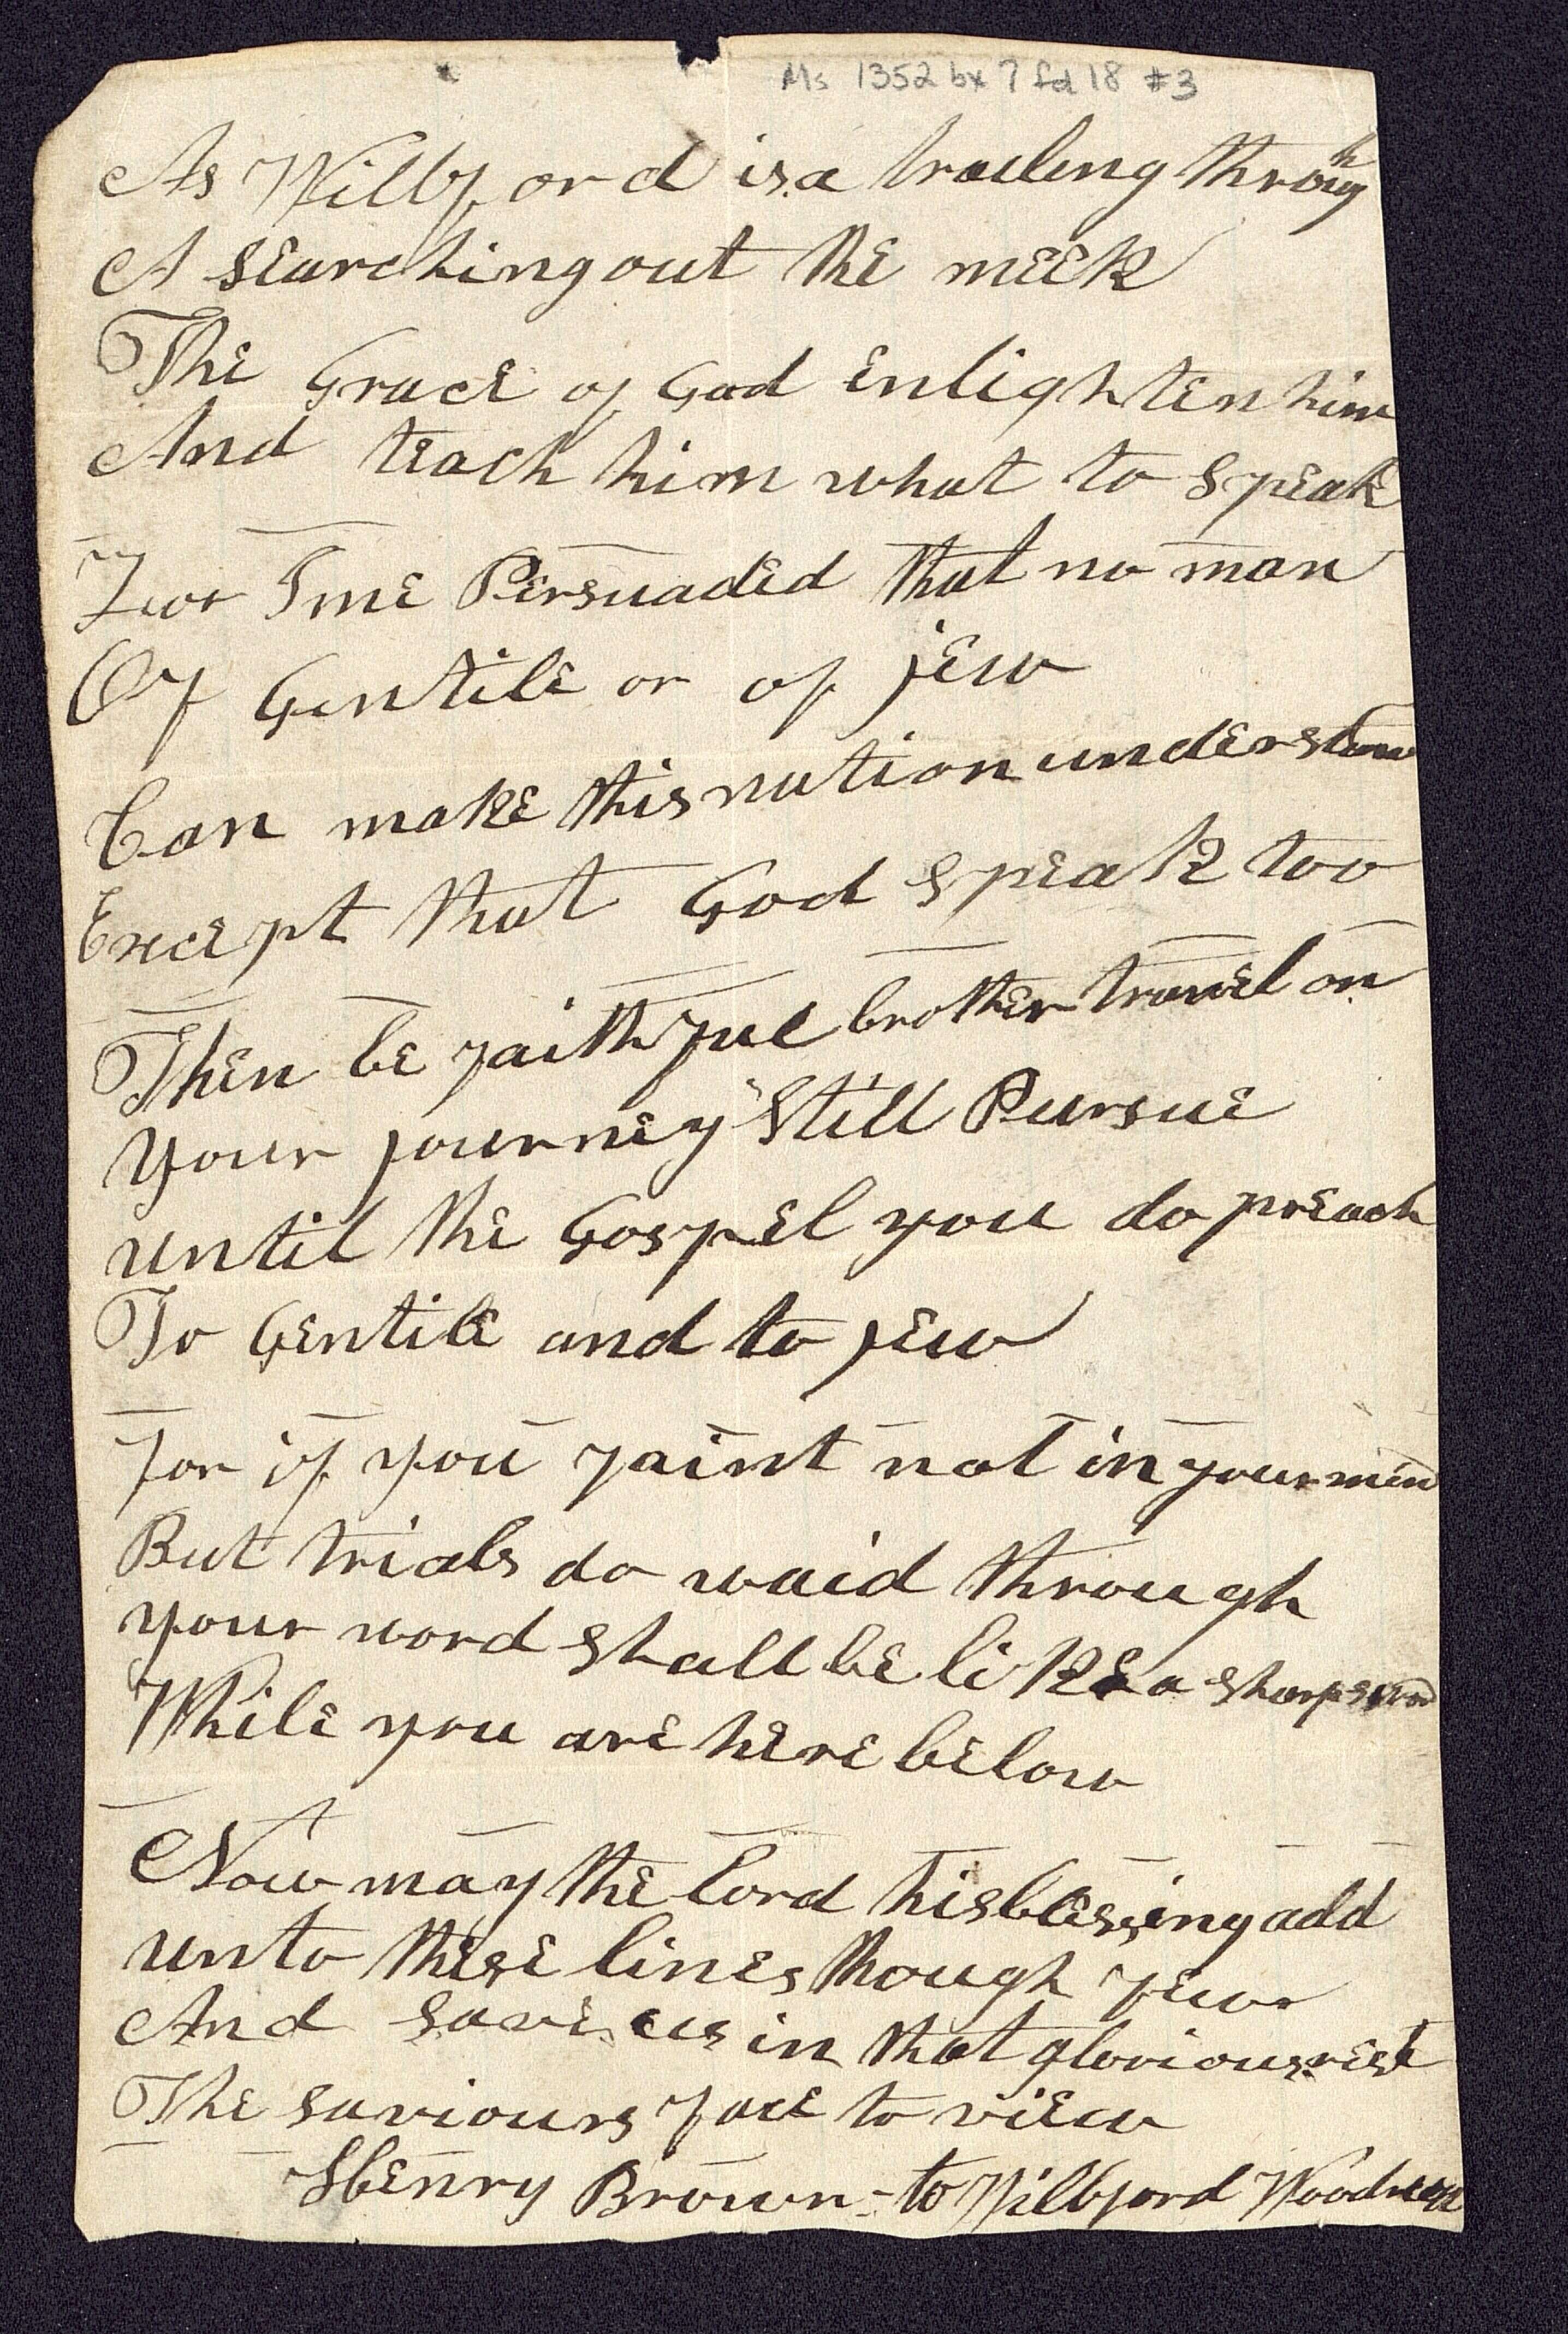 Ms 1352 bx 7 fd 18 #3
As Willford is a traveling through
A searching out the meek
The Grace of God enlighten him
And teach him what to speak
For Ime Persuaded that no man
Of Gentile or of jew
Can make this nation understand
Except that God speak too
Then be faithful brother travel on
Your journey Still Pursue
until the Gospel you do preach
To Gentile and to jew
for if you faint not in your mind
But trials do waid through
your word shall be like a sharp sword
While you are here below
Now may the Lord his blessing add
unto these lines though few
And save us in that glorious rest
The saviours face to view
Henry Brown - to Wilford Woodruff